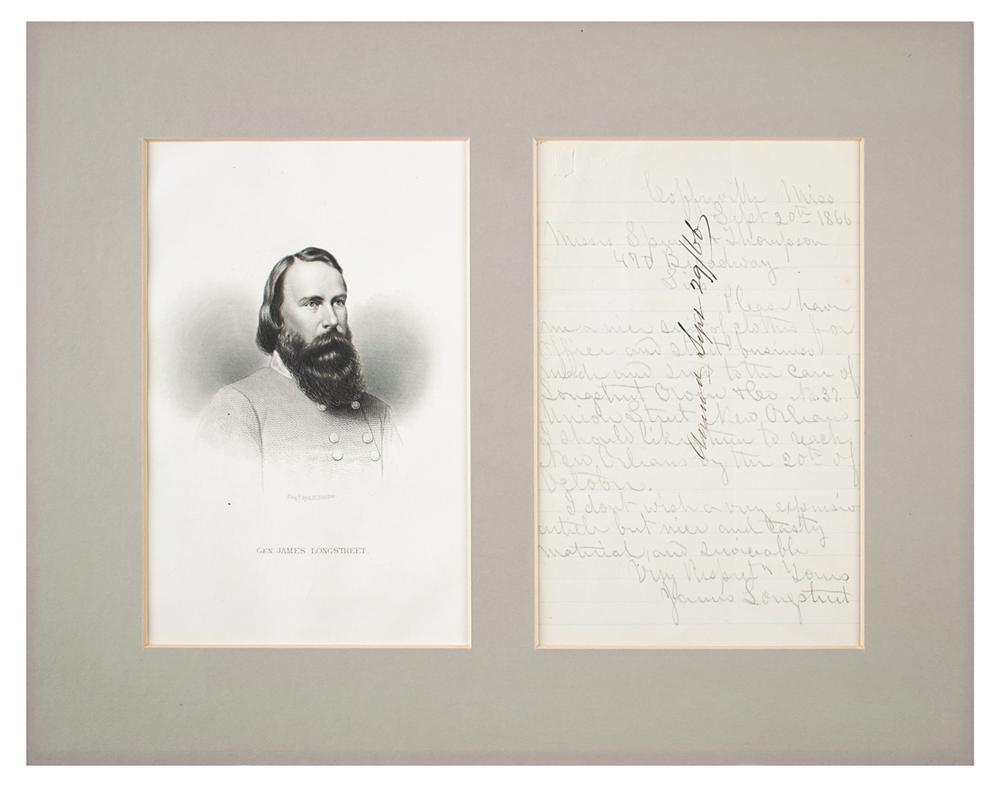 GEN. JAMES LONGSTREET.
Coffeyville Miss
Sept 20th 1866
Messrs & Thompson
470 Broadway
Sirs
Please have
me a nice suit of clothes for
office and street business
made and sent to the care of
Longstreet Owen & Co No. 37.
Union Street, New Orleans
I should like them to reach
New Orleans by the 20th of
October.
I dont wish a very expensive
article but nice and tasty
material, and serviceable
Very Respect" Yours
James Longstreet
Sept 29/66